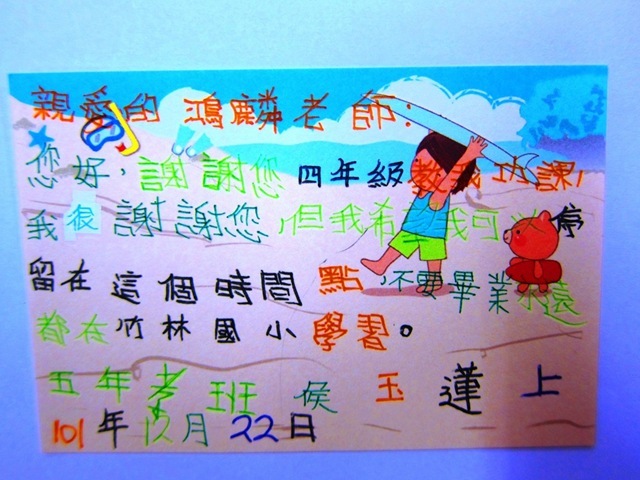 親愛的 鴻麟老師：
您好，謝謝您四年級教我功課，
我很謝謝您，但我希望我可以停
留在這個時間點，不要畢業永遠
都在竹林國小學習。
五年孝班侯玉蓮上
101年12月22日